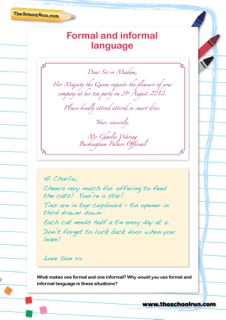 TheSchoolRun.com
Formal and informal
language
Dear Sir or Madam,
Her Majesty the Queen requests the pleasure of your
company at her tea party on 31st August 2012.
Please kindly attend attired in smart dress.
Yours sincerely,
Mr Charles Waring
Buckingham Palace Official
Hi Charlie,
Cheers very much for offering to feed
the cats! You're a star!
Tins are in top cupboard – tin opener in
third drawer down.
Each cat needs half a tin every day at 5.
Don't forget to lock back door when you
leave!
Love Sun >>
What makes one formal and one informal? Why would you use formal and
informal language in these situations?
www.theschoolrun.com